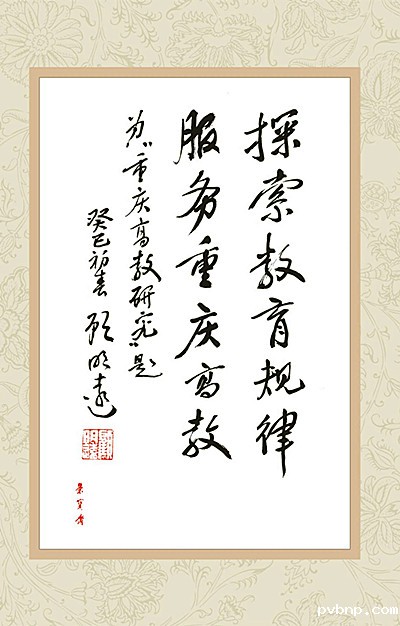 探索教育规律
服务重庆高教
为“重庆高教研究”题
癸巳初春 顾明远
pvbnp.com